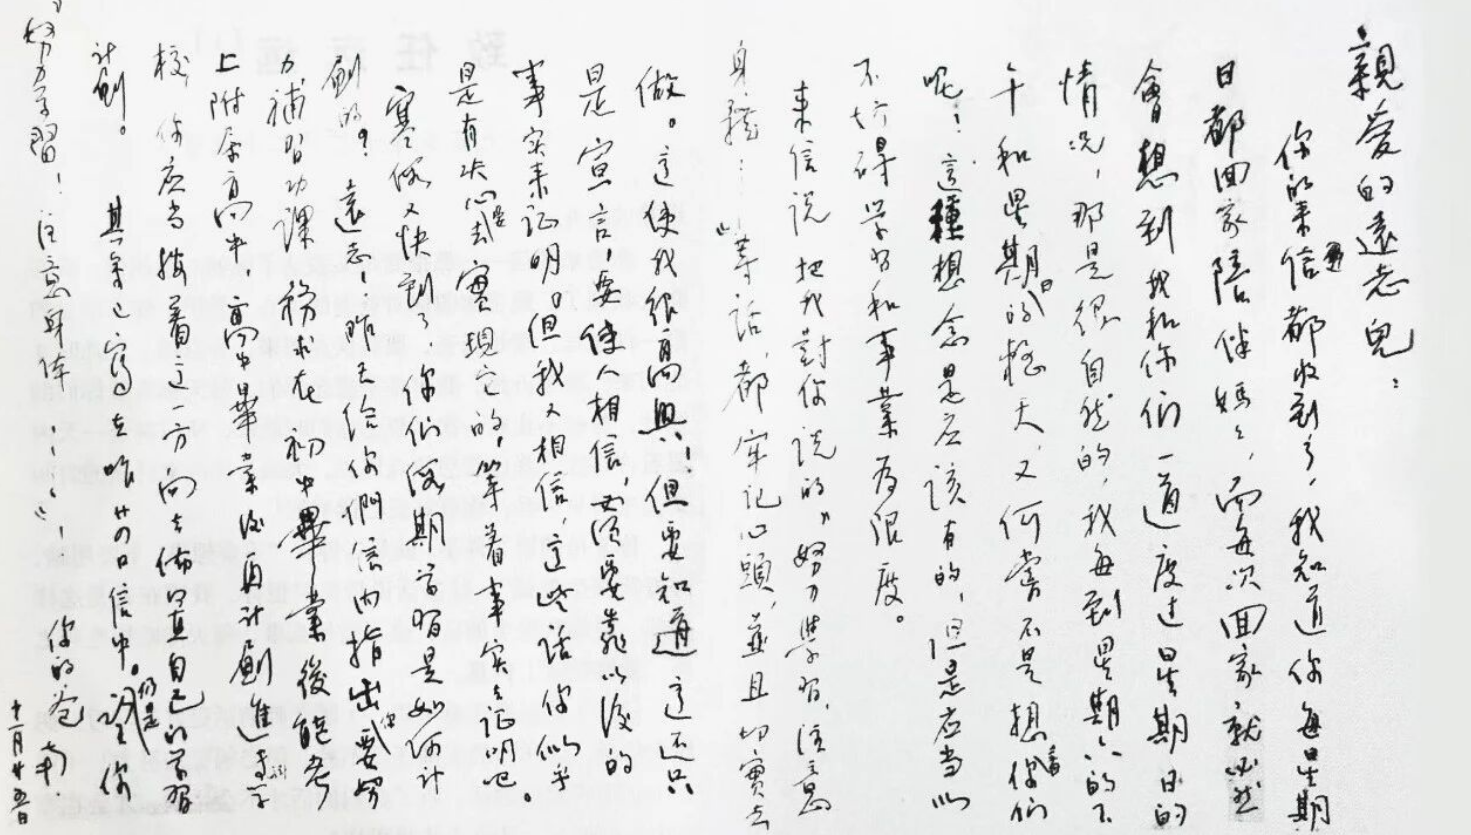 親爱的遠志兒：
你的来信都收到了，我知道你每星期
日都回家陪伴媽々，而每次回家就必然
會想到我和你们一道度过星期日的
情况，那是很自然的，我每到星期六的下
午和星期日的整天又何嘗不是想着你们
呢！這種想念是应该有的，但是应当以
不妨碍学习和事業为限度。
来信说把我對你说的“努力学习，注意
身體……”等话，都牢记心頭，並且切實去
做。这使我很高興，但要知道這还只
是宣言，要使人相信，必须要靠以後的
事实来证明。但我又相信，这些话你似乎
是有决心去实现它的，等着事实去证明吧。
寒假又快到了，你们假期学习是如何计
劃的？遠志：昨天给你們信内指出要努
力補習功課，務求在初中畢業後能考
上附属高中，高中畢業後再计劃進大学
校，你应当按着这一方向去佈置自己的学习
计劃。其余已寫在昨廿四日信中。仍是望你
“努力学习！注意身体……”！
你的爸 南．
十一月廿五日